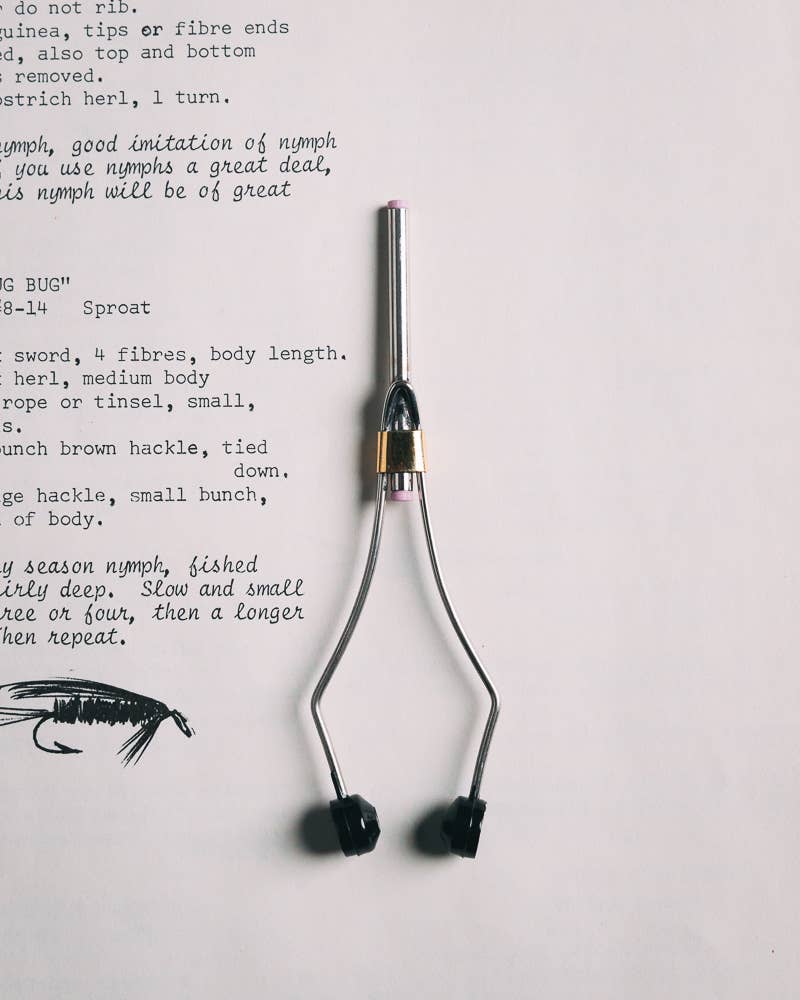 do not rib.
guinea, tips or fibre ends
also top and bottom
removed.
ostrich herl, 1 turn.
nymph, good imitation of nymph
you use nymphs a great deal,
nymph will be of great
BUG"
8-14 Sproat
sword, 4 fibres, body length.
herl, medium body
rope or tinsel, small,
brown hackle, tied
down.
hackle, small bunch,
of body.
season nymph, fished
deep. Slow and small
or four, then a longer
then repeat.